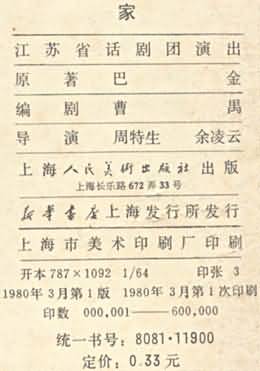 家
江苏省话剧团演出
原著 巴金
编剧 曹禺
导演 周特生 余凌云
上海人民美術出版社出版
上海长乐路672弄33号
新华書店上海发行所发行
上海市美术印刷厂印刷
开本787×1092 1/64 印张 3
1980年3月第1版 1980年3月第1次印刷
印数 000,001——600,000
统一书号：8081·11900
定价：0.33元